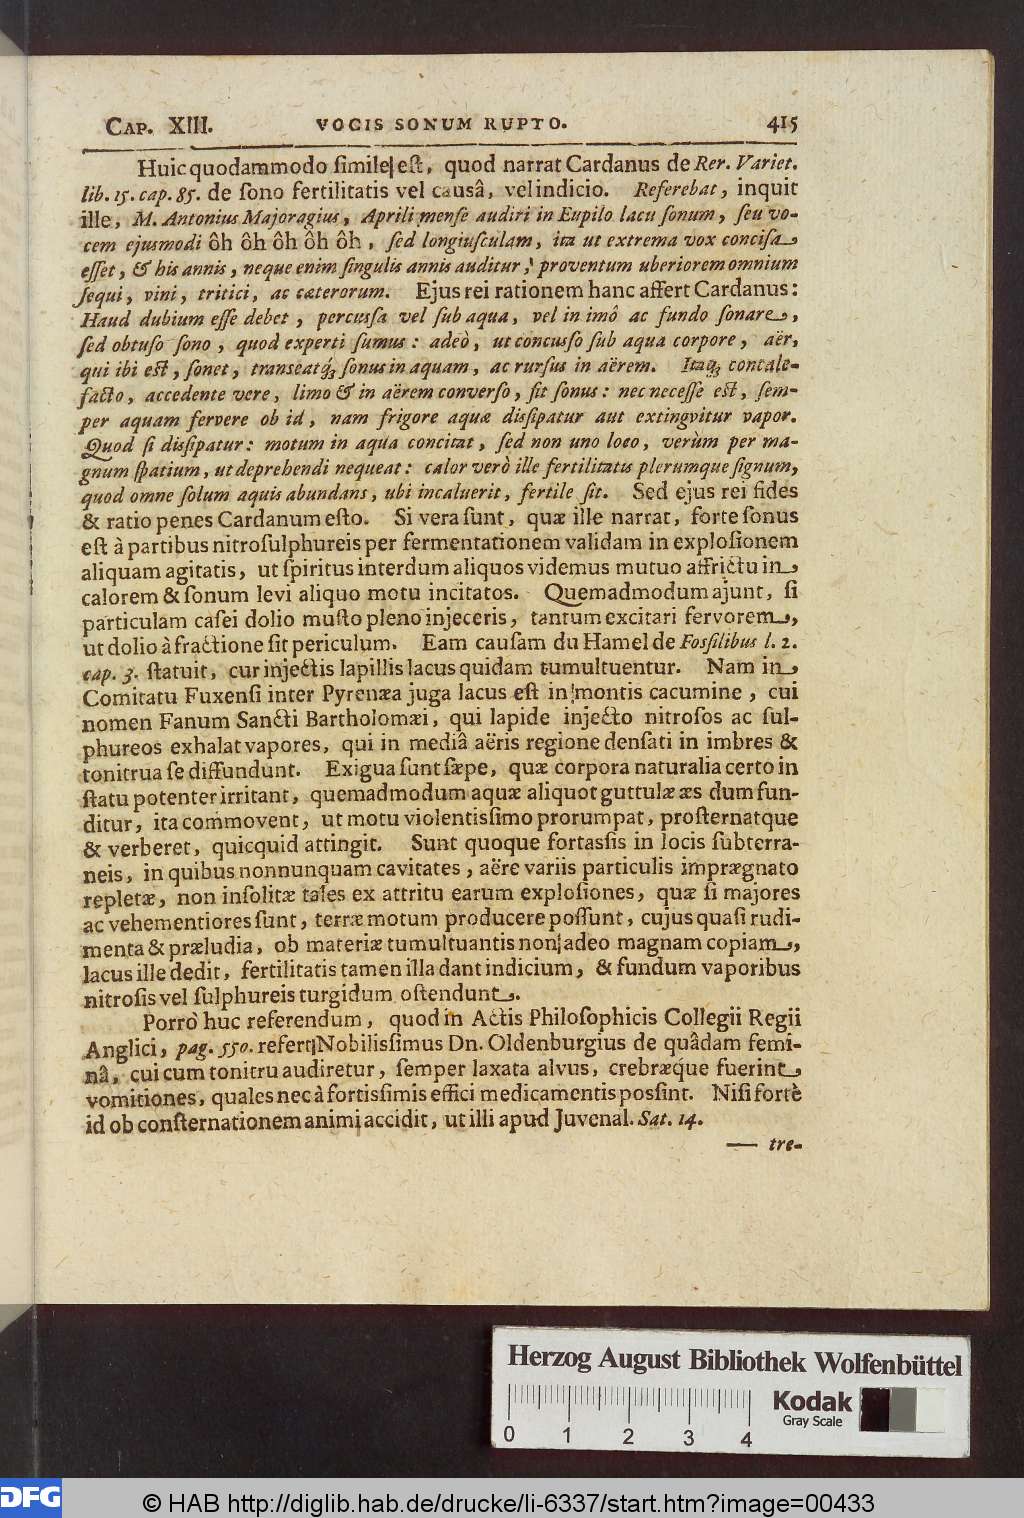 CAP. XIII. VOCIS SONUM RUPTO. 415
Huic quodammodo simile est, quod narrat Cardanus de Rer. Variet.
lib. 15. cap. 85. de sono fertilitatis vel causâ, vel indicio. Referebat, inquit
ille, M. Antonius Majoragius, Aprili mense audiri in Eupilo lacu sonum, seu vo-
cem ejusmodi ôh ôh ôh ôh ôh, sed longiusculam, ita ut extrema vox concisa
esset, & his annis, neque enim singulis annis auditur, proventum uberiorem omnium
sequi, vini, tritici, ac cæterorum. Ejus rei rationem hanc affert Cardanus:
Haud dubium esse debet, percussa vel sub aqua, vel in imô ac fundo sonare,
sed obtuso sono, quod experti sumus: adeò, ut concusso sub aqua corpore, aër,
qui ibi est, sonet, transeatq́; sonus in aquam, ac rursus in aërem. Itaq; concale-
facto, accedente vere, limo & in aërem converso, fit sonus: nec necesse est, sem-
per aquam fervere ob id, nam frigore aquæ dissipatur aut extingvitur vapor.
Quod si dissipatur: motum in aqua concitat, sed non uno loco, verùm per ma-
gnum spatium, ut deprehendi nequeat: calor verò ille fertilitatis plerumque signum,
quod omne solum aquis abundans, ubi incaluerit, fertile sit. Sed ejus rei fides
& ratio penes Cardanum esto. Si vera sunt, quæ ille narrat, forte sonus
est à partibus nitrosulphureis per fermentationem validam in explosionem
aliquam agitatis, ut spiritus interdum aliquos videmus mutuo affrictu in
calorem & sonum levi aliquo motu incitatos. Quemadmodum ajunt, si
particulam casei dolio musto pleno injeceris, tantum excitari fervorem,
ut dolio à fractione sit periculum. Eam causam du Hamel de Fossilibus l. 2.
cap. 3. statuit, cur injectis lapillis lacus quidam tumultuentur. Nam in
Comitatu Fuxensi inter Pyrenæa juga lacus est in montis cacumine, cui
nomen Fanum Sancti Bartholomæi, qui lapide injecto nitrosos ac sul-
phureos exhalat vapores, qui in mediâ aëris regione densati in imbres &
tonitrua se diffundunt. Exigua sunt sæpe, quæ corpora naturalia certo in
statu potenter irritant, quemadmodum aquæ aliquot guttulæ æs dum fun-
ditur, ita commovent, ut motu violentissimo prorumpat, prosternatque
& verberet, quicquid attingit. Sunt quoque fortassis in locis subterra-
neis, in quibus nonnunquam cavitates, aëre variis particulis imprægnato
repletæ, non insolitæ tales ex attritu earum explosiones, quæ si majores
ac vehementiores sunt, terræ motum producere possunt, cujus quasi rudi-
menta & præludia, ob materiæ tumultuantis non adeo magnam copiam,
lacus ille dedit, fertilitatis tamen illa dant indicium, & fundum vaporibus
nitrosis vel sulphureis turgidum ostendunt.
Porrò huc referendum, quod in Actis Philosophicis Collegii Regii
Anglici, pag. 550. refert Nobilissimus Dn. Oldenburgius de quâdam femi-
nâ, cui cum tonitru audiretur, semper laxata alvus, crebræque fuerint
vomitiones, quales nec à fortissimis effici medicamentis possint. Nisi fortè
id ob consternationem animi accidit, ut illi apud Juvenal. Sat. 14.
— tre-
Herzog August Bibliothek Wolfenbüttel
Kodak
Gray Scale
0 1 2 3 4
DFG
© HAB http://diglib.hab.de/drucke/li-6337/start.htm?image=00433